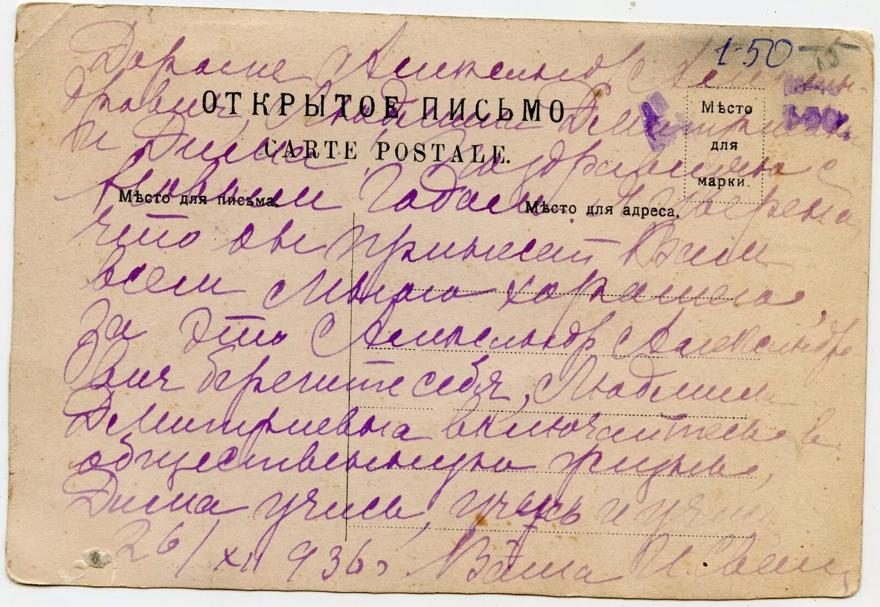 1-50
Дорогие Александр Алексан-
дрович, Людмила Дмитриевна
ОТКРЫТОЕ ПИСЬМО
Мѣсто
для
марки.
и Дима! Поздравляю с
CARTE POSTALE.
Новым Годом. Уверена,
Мѣсто для письма.
Мѣсто для адреса.
что он принесет Вам
всем много хорошего.
За это Александр Александро
вич берегите себя, Людмила
Дмитриевна включайтесь в
общественную жизнь,
Дима учись, учись и учись
26/XII 936 Ваша